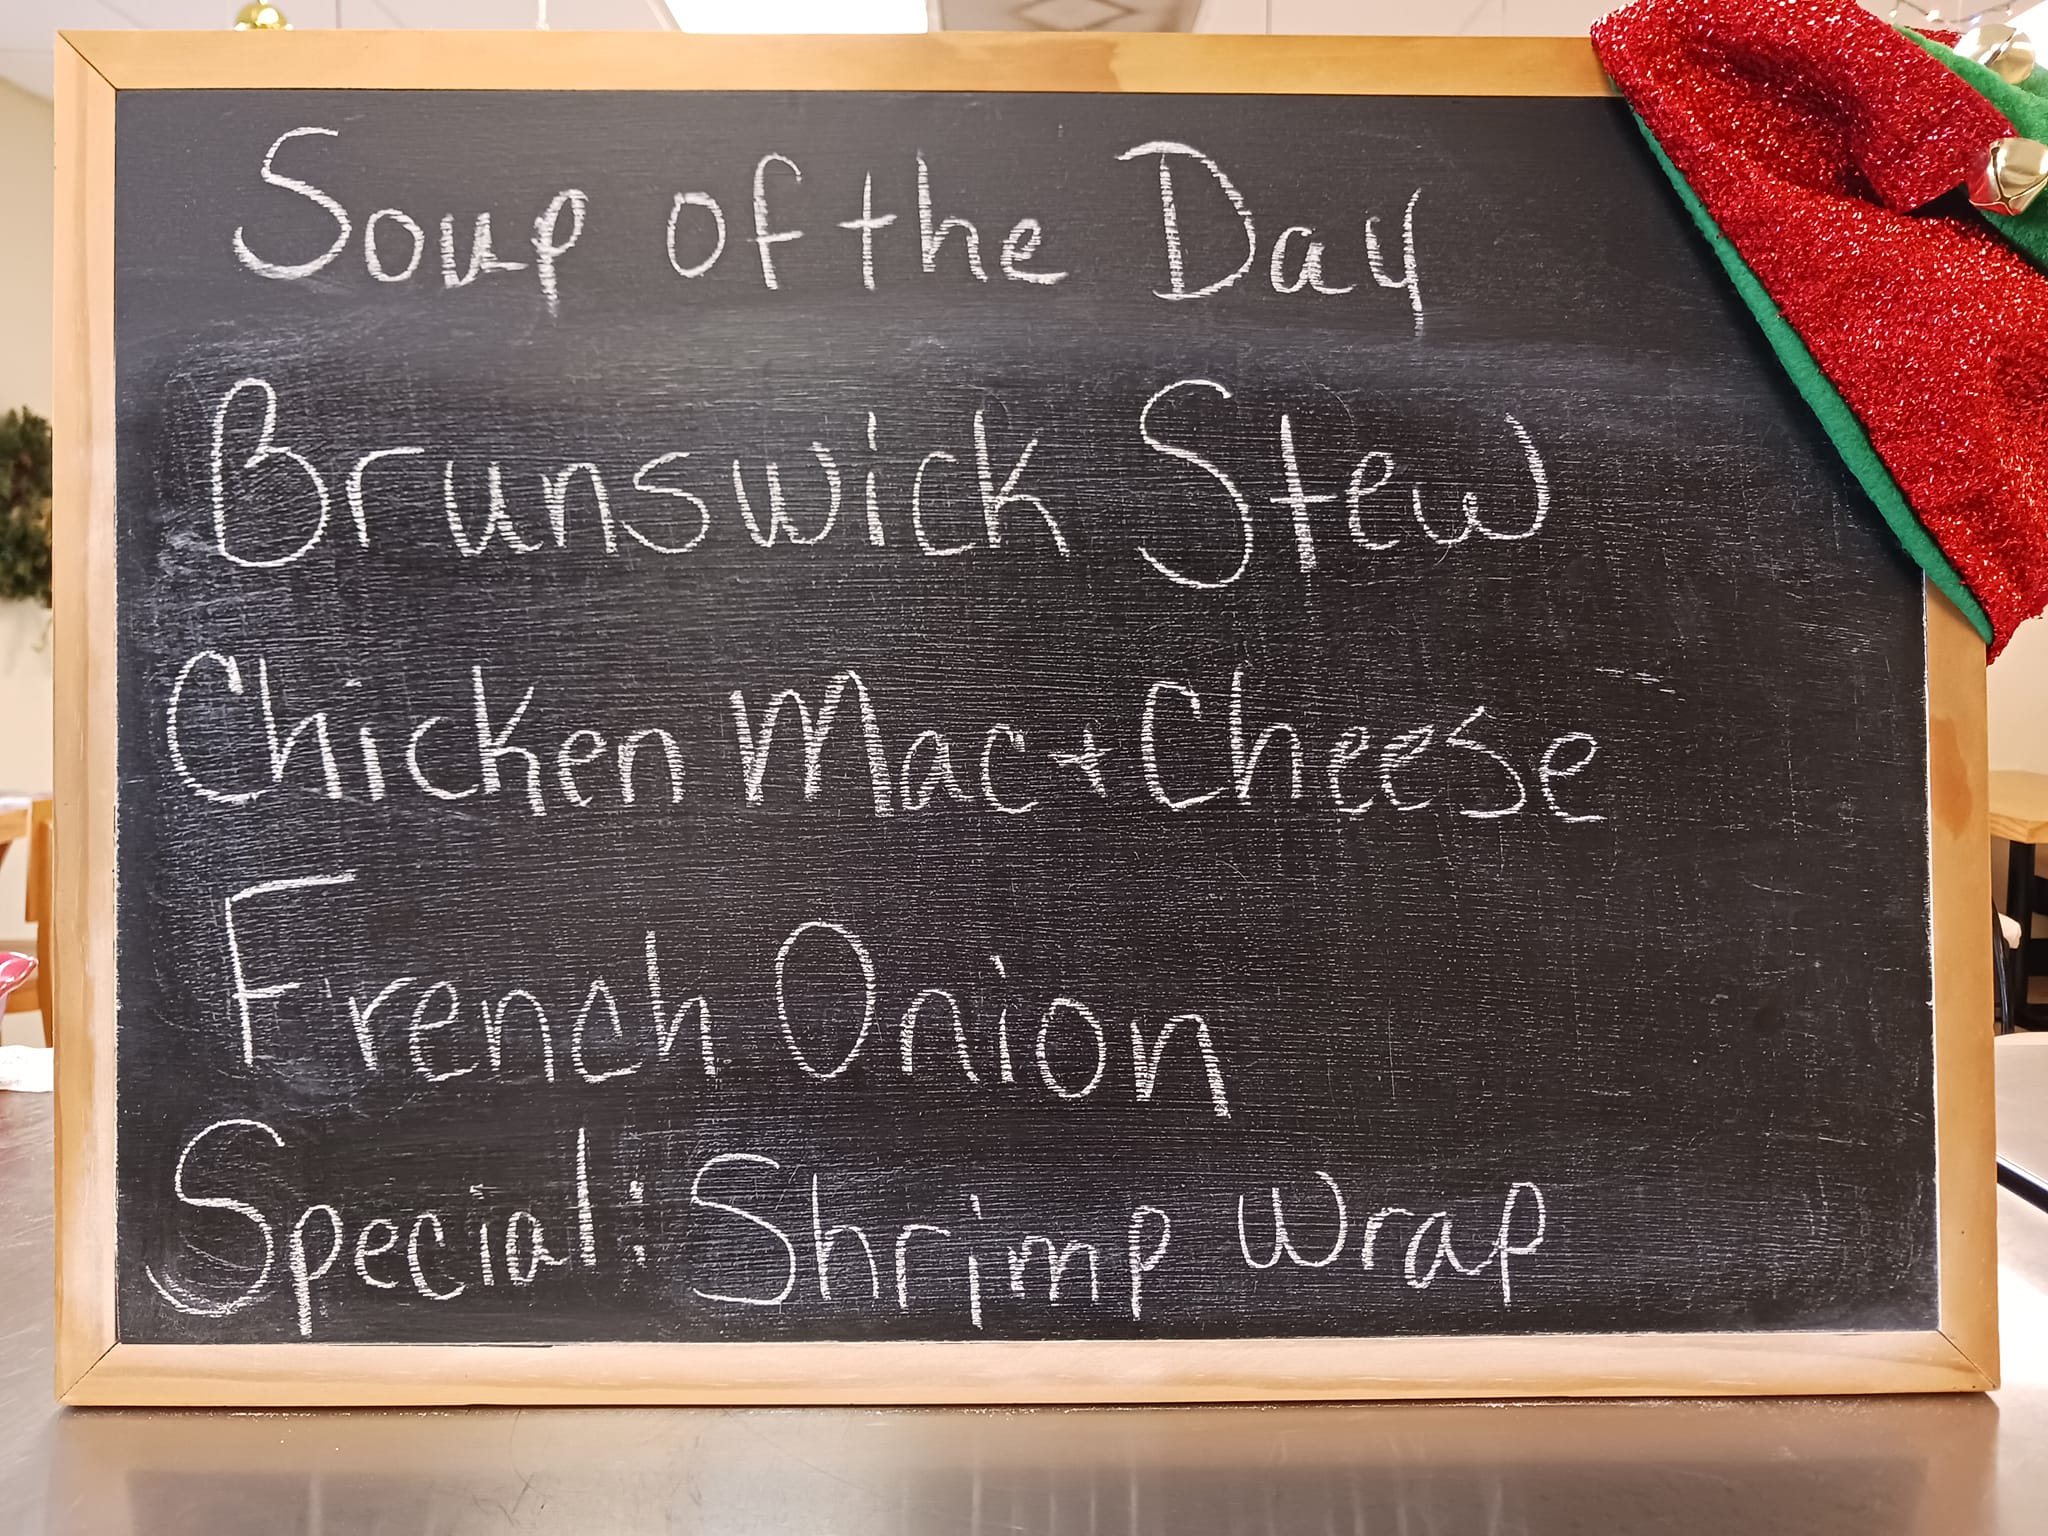 Soup of the Day
Brunswick Stew
Chicken Mac + Cheese
French Onion
Special: Shrimp Wrap